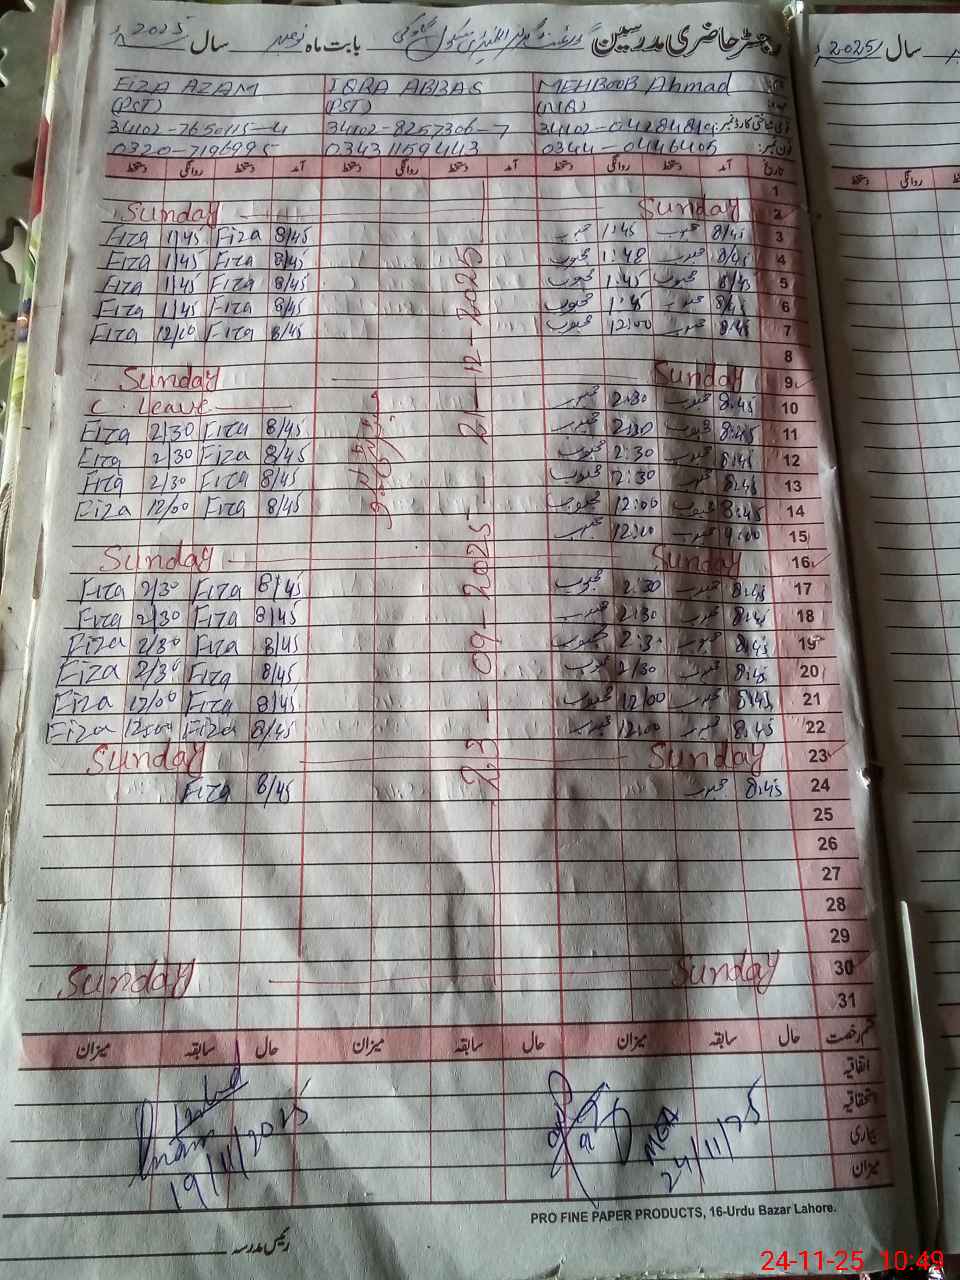 رجسٹر حاضری مدرسین گورنمنٹ گرلز ایلیمنٹری سکول بابت ماہ نومبر سال 2025
سال 2025
EIZA AZAM IQRA ABBAS MEHBOOB Ahmad
(PST) (PST) (N.Q)
34102-7650115-4 34102-8257306-7 34102-0428481-9
0320-7196995 03431159443 0344-0446405
دستخط روانگی دستخط آمد دستخط روانگی دستخط آمد دستخط روانگی دستخط آمد تاریخ
دستخط روانگی دستخط
1
Sunday Sunday 2
Eiza 1/45 Eiza 8/45 محبوب 1:45 محبوب 8/45 3
Eiza 1/45 Eiza 8/45 محبوب 1:48 محبوب 8/45 4
Eiza 1/45 Eiza 8/45 محبوب 1:45 محبوب 8/45 5
Eiza 1/45 Eiza 8/45 محبوب 1:45 محبوب 8/45 6
Eiza 12/00 Eiza 8/45 محبوب 12:00 محبوب 8:45 7
8
Sunday Sunday 9
C. Leave محبوب 2:30 محبوب 8:45 10
Eiza 2/30 Eiza 8/45 محبوب 2:30 محبوب 8:45 11
Eiza 2/30 Eiza 8/45 محبوب 2:30 محبوب 8:45 12
Eiza 2/30 Eiza 8/45 محبوب 2:30 محبوب 8:45 13
Eiza 12/00 Eiza 8/45 محبوب 12:00 محبوب 8:45 14
محبوب 12:00 محبوب 9:00 15
Sunday Sunday 16
Eiza 2/30 Eiza 8/45 محبوب 2:30 محبوب 8:45 17
Eiza 2/30 Eiza 8/45 محبوب 2:30 محبوب 8:45 18
Eiza 2/30 Eiza 8/45 محبوب 2:30 محبوب 8:45 19
Eiza 2/30 Eiza 8/45 محبوب 2/30 محبوب 8:45 20
Eiza 12/00 Eiza 8/45 محبوب 12/00 محبوب 8:45 21
Eiza 12:00 Eiza 8/45 محبوب 12:00 محبوب 8:45 22
Sunday Sunday 23
Eiza 8/45 محبوب 8:45 24
23-09-2025 - 21-12-2025
25
26
27
28
29
Sunday Sunday 30
31
میزان سابقہ حال میزان سابقہ حال میزان سابقہ حال قسم رخصت
اتفاقیہ
استحقاقیہ
بیماری
میزان
19/11/2025
MEA
24/11/25
PRO FINE PAPER PRODUCTS, 16-Urdu Bazar Lahore.
رئیس مدرسہ
24-11-25 10:49